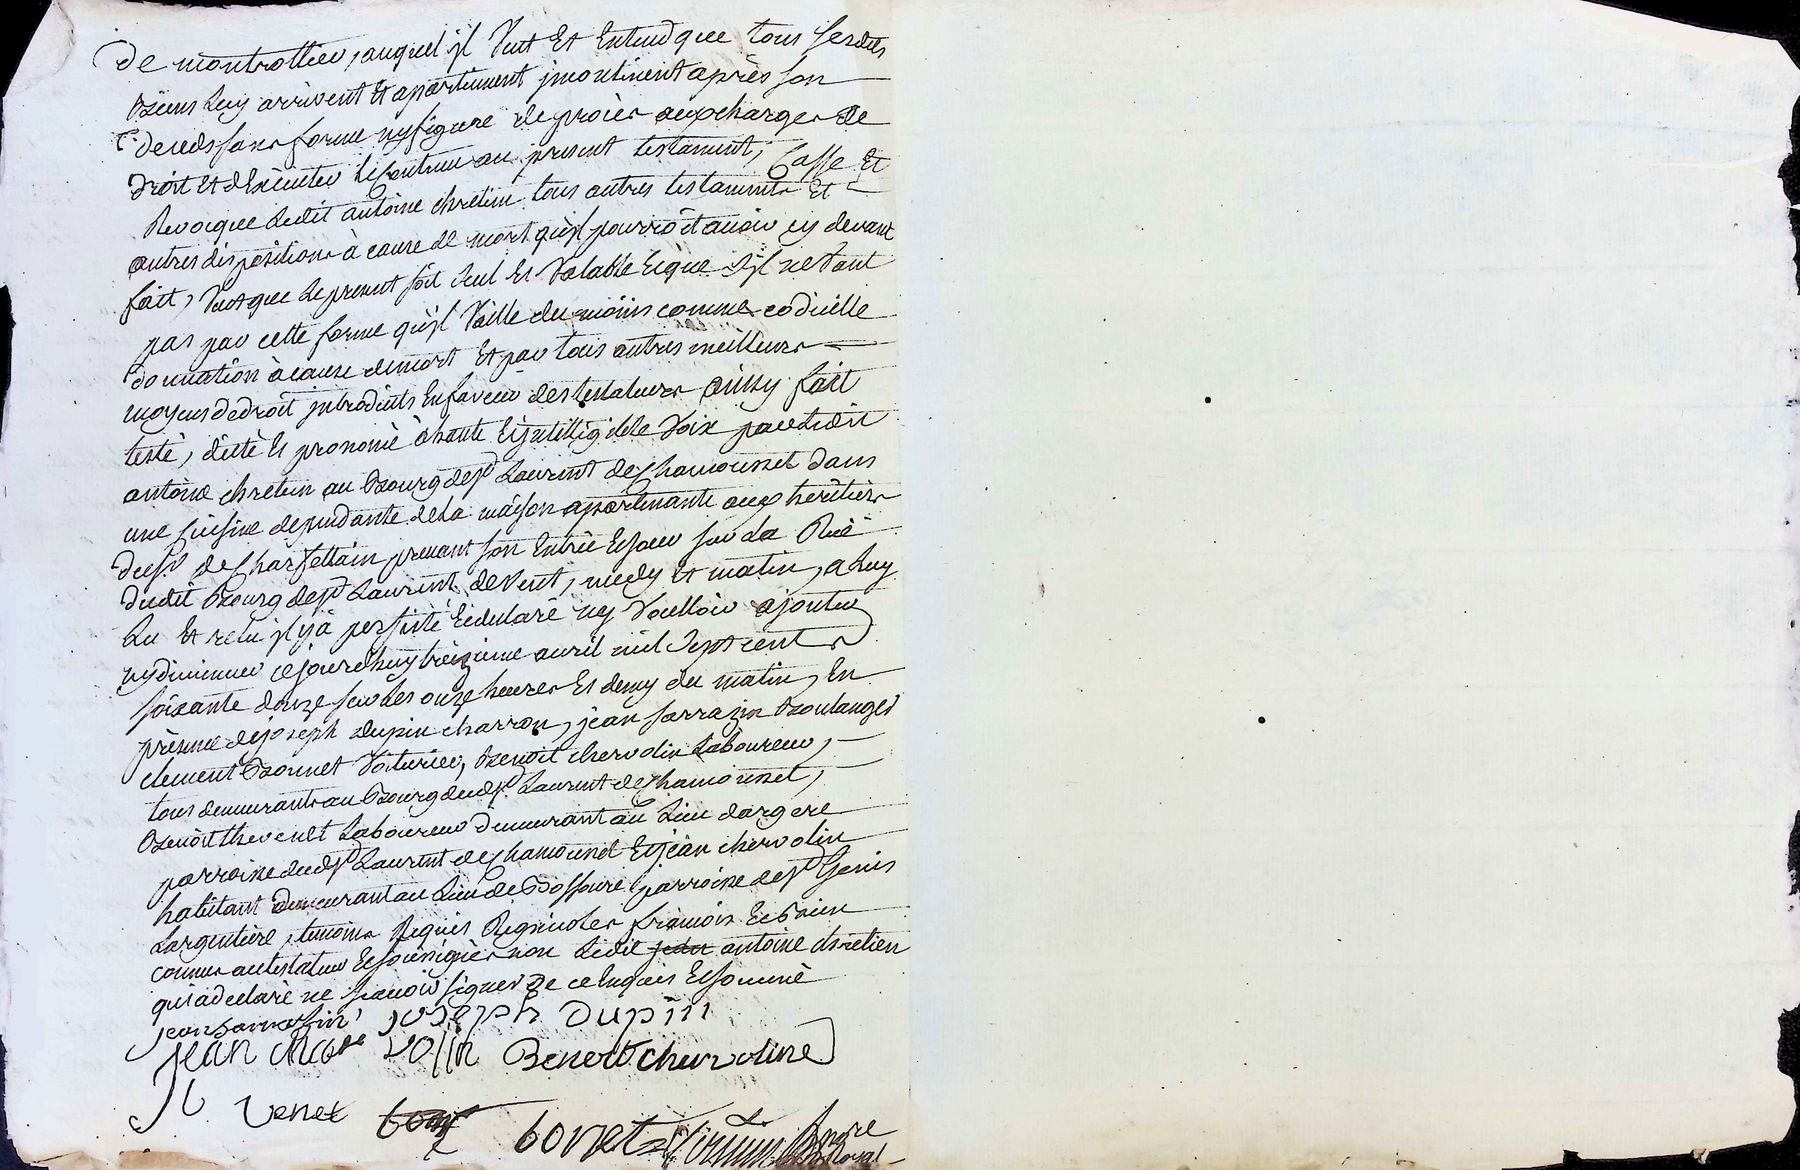 de montrottier, auquel jl Veut Et Entend que tous sesdits
Biens Luy arrivent Et apartiennent jncontinent après son
deceds sans forme ny figure de procès aux charges de
droit Et d'Exécuter le Contenu au present testament; Casse Et
Revocque Ledit antoine chretien tous autres testaments Et
autres dispositions à cause de mort qu'jl pourroit avoir cy devant
fait, Veut que Le present soit seul Et Valable Et que s'jl ne Vaut
pas par cette forme qu'jl Vaille du moiins comme codicille
donnation à cause de mort Et par tous autres meilleurs
moyens de droit jntroduits En faveur des testateurs ainsy fait
testé, dicté Et prononcé à haute Et jntelligible Voix par Ledit
antoine chretien au Bourg de st Laurent de Chamousset dans
une Cuisine dependante de La maison apartenante aux heritiers
du sr de Charfettain prenant son Entrée Et jour sur La Rüe
dudit Bourg de st Laurent de Vent, midy Et matin, a Luy
Lu Et relu jl y à persisté Et declaré ny Voulloir ajouter
ny diminuer cejourd'huy treizieme avril mil sept cent
soixante douze sur Les onze heures Et demy du matin, En
présence de joseph dupin charron, jean sarrazin Boulanger
clement Bonnet Voiturier, Benoit chervolin Laboureur,
tous demeurants au Bourg dudt st Laurent de Chamousset,
Benoit thevenet Laboureur demeurant au Lieu dargere
parroisse dudt st Laurent de Chamousset Et jean chervolin
habitant demeurant au Lieu de parroisse de st Genis
Largentiere, temoins Requis Regnicoles françois Et Bien
connus au testateur Et soussignés non Ledit jean antoine chretien
qui a declaré ne sçavoir signer de ce Enquis Et sommé
jean Sarrasin joseph Dupin
jean cher volin Benoit chervoline
venet bon
bonet Notaire Royal